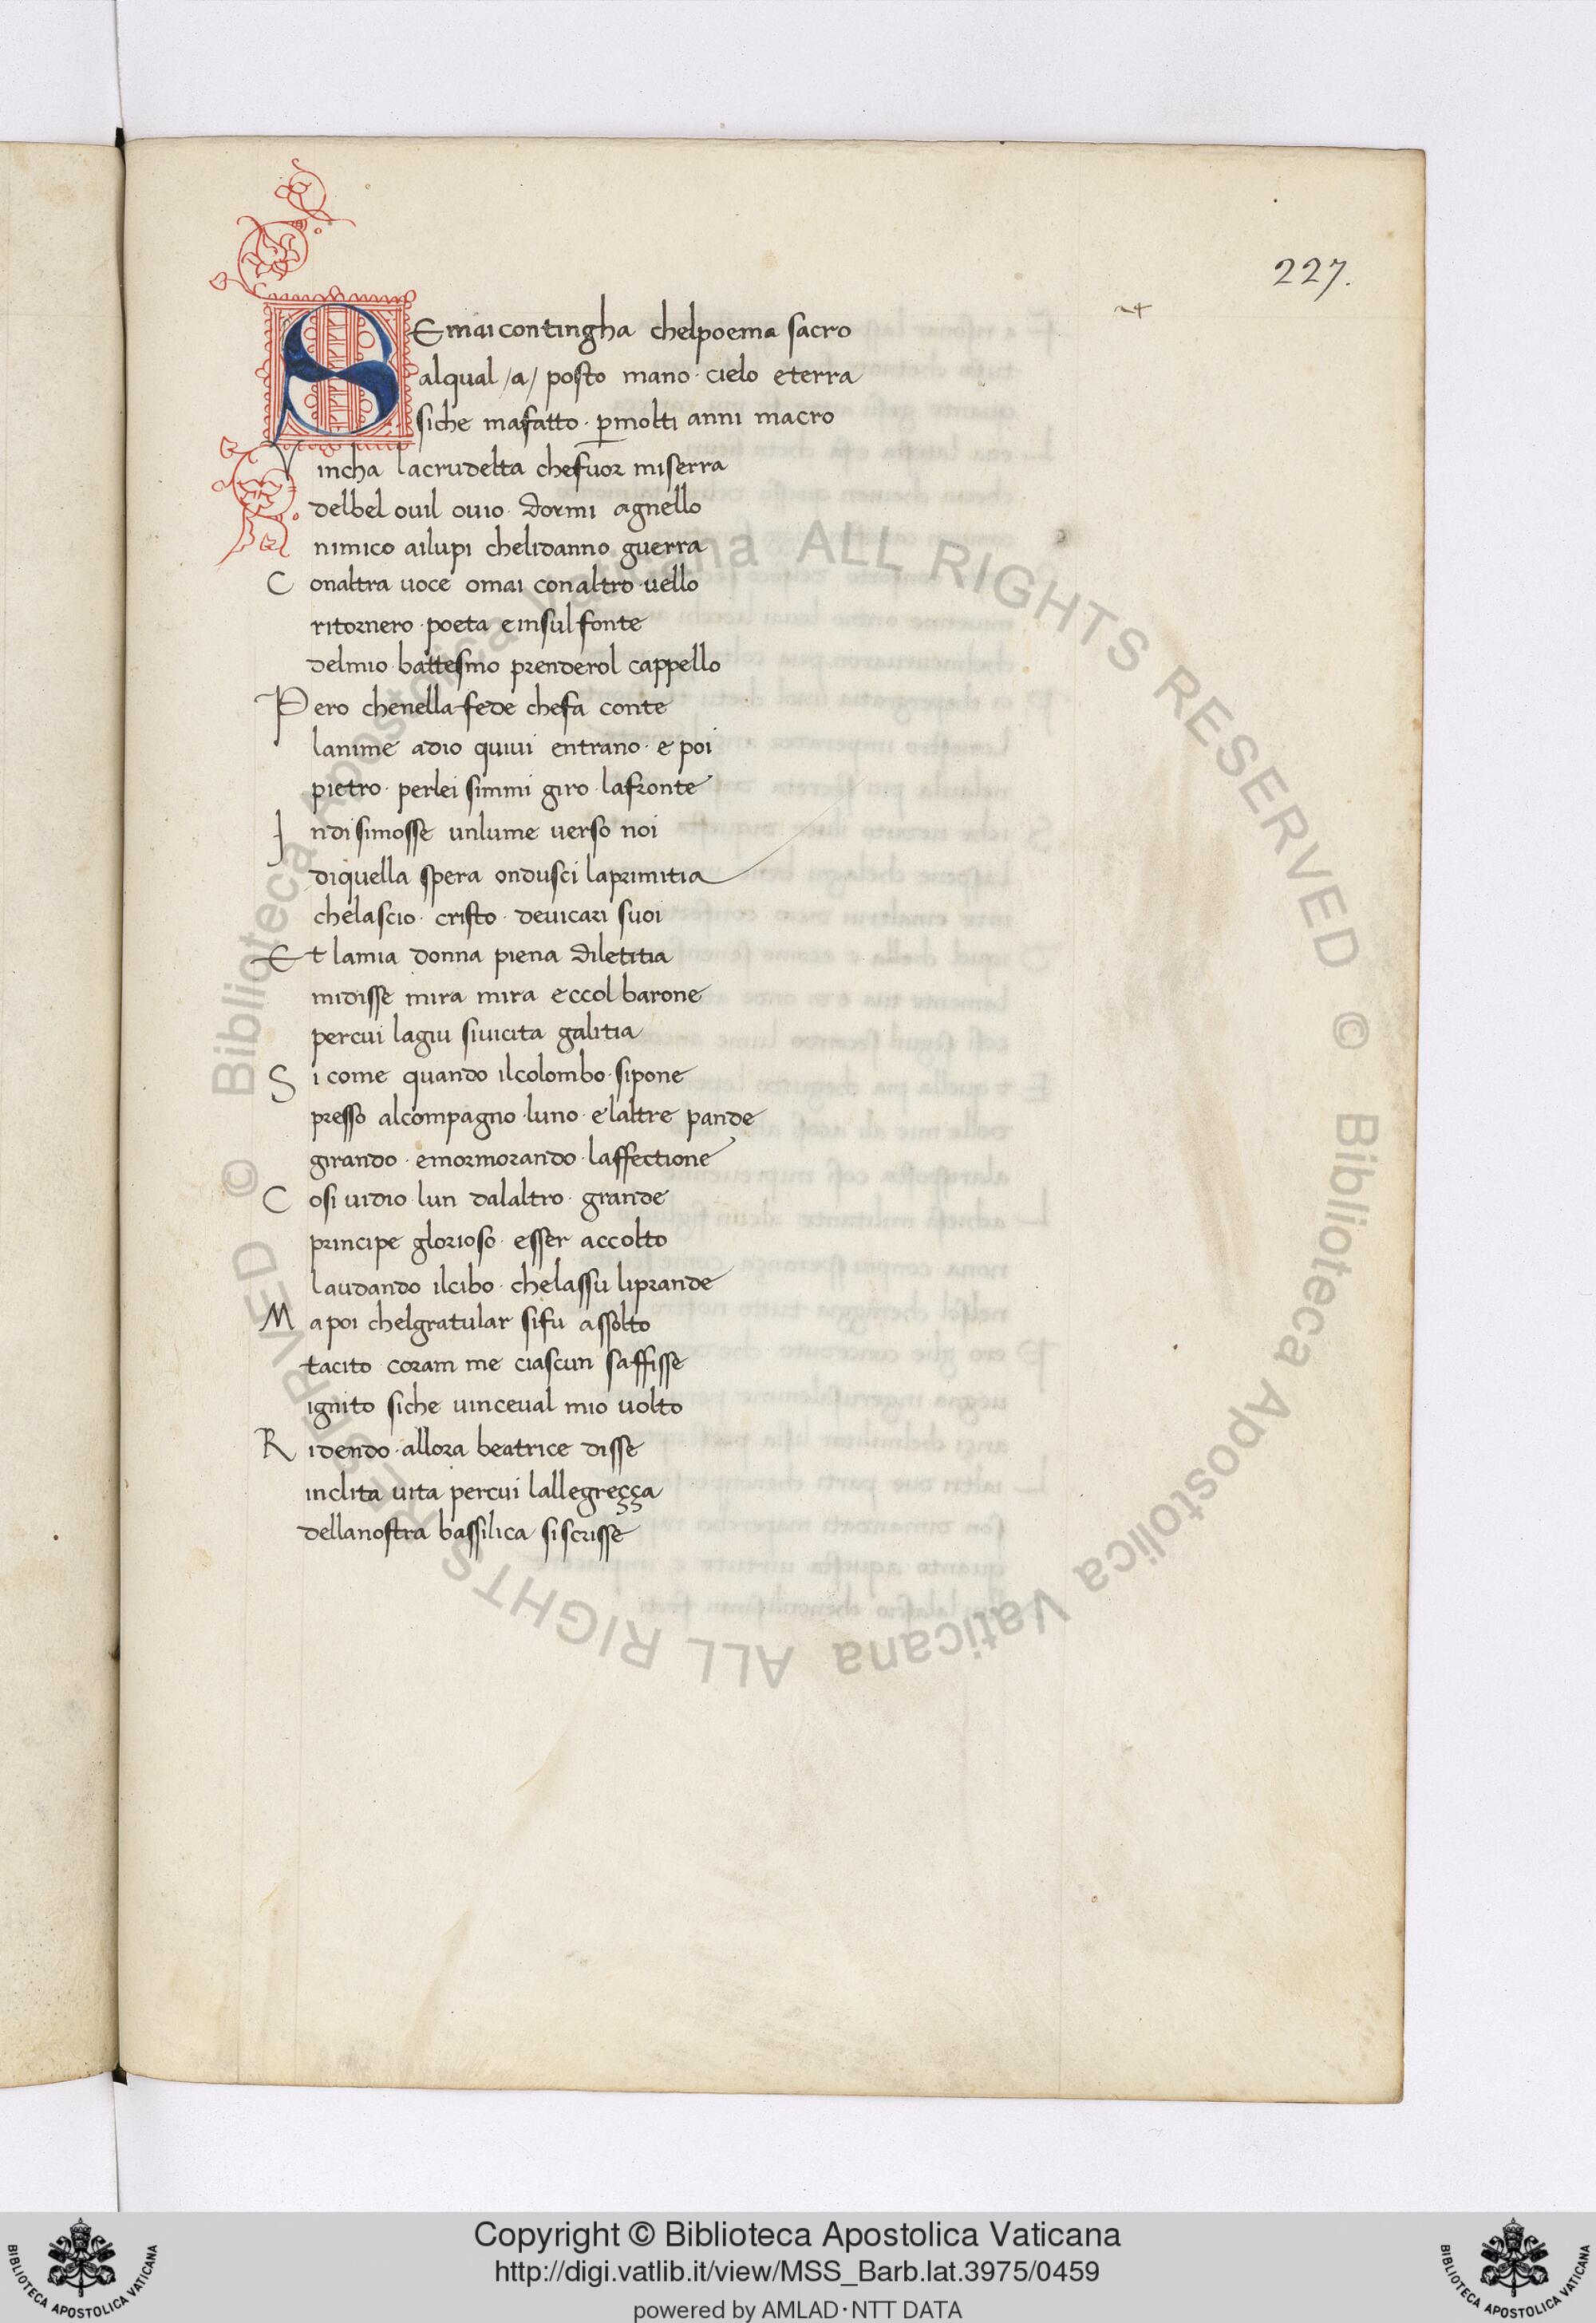 227.
SE mai contingha chelpoema sacro
alqual /a/ posto mano · cielo eterra
siche mafatto · ꝑmolti anni macro
Vincha lacrudelta chefuor miserra
delbel ouil ouio · dormi agnello
nimico ailupi chelidanno guerra
Conaltra uoce omai conaltro uello
ritornero · poeta einsul fonte
delmio battesmo prenderol cappello
Pero chenella fede chefa conte
lanime adio quiui entrano · e poi
pietro · perlei simmi giro · lafronte
Indi simosse unlume uerso noi
diquella spera ondusci laprimitia
chelascio · cristo · deuicari suoi
Et lamia donna piena diletitia
midisse mira mira eccol barone
percui lagiu siuicita galitia
Si come quando ilcolombo · sipone
presso alcompagno · luno · elaltre pande
girando · emormorando · laffectione
Cosi uidio · lun dalaltro · grande
principe glorioso · esser accolto
laudando ilcibo · chelassu liprande
Ma poi chelgratular sifu assolto
tacito coram me ciascun saffisse
ignito siche uinceual mio uolto
Ridendo · allora beatrice disse
inclita uita percui lallegreçça
dellanostra bassilica siscrisse
© Biblioteca Apostolica Vaticana ALL RIGHTS RESERVED © Biblioteca Apostolica Vaticana ALL RIGHTS RESERVED
Copyright © Biblioteca Apostolica Vaticana
http://digi.vatlib.it/view/MSS_Barb.lat.3975/0459
powered by AMLAD·NTT DATA
BIBLIOTECA APOSTOLICA VATICANA
BIBLIOTECA APOSTOLICA VATICANA